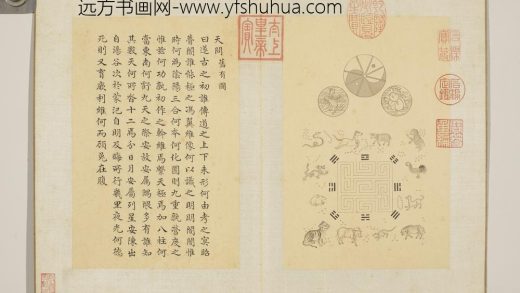 远方书画网 - www.yfshuhua.com
太上
皇帝
之寶
天問舊有圖
曰遂古之初誰傳道之上下未形何由考之冥昭
瞢闇誰能極之馮翼惟像何以識之明明闇闇惟
時何為陰陽三合何本何化圜則九重孰營度之
惟茲何功孰初作之斡維焉繫天極焉加八柱何
當東南何虧九天之際安放安屬隅隈多有誰知
其數天何所沓十二焉分日月安屬列星安陳出
自湯谷次於蒙汜自明及晦所行幾里夜光何德
死則又育厥利維何而顧菟在腹